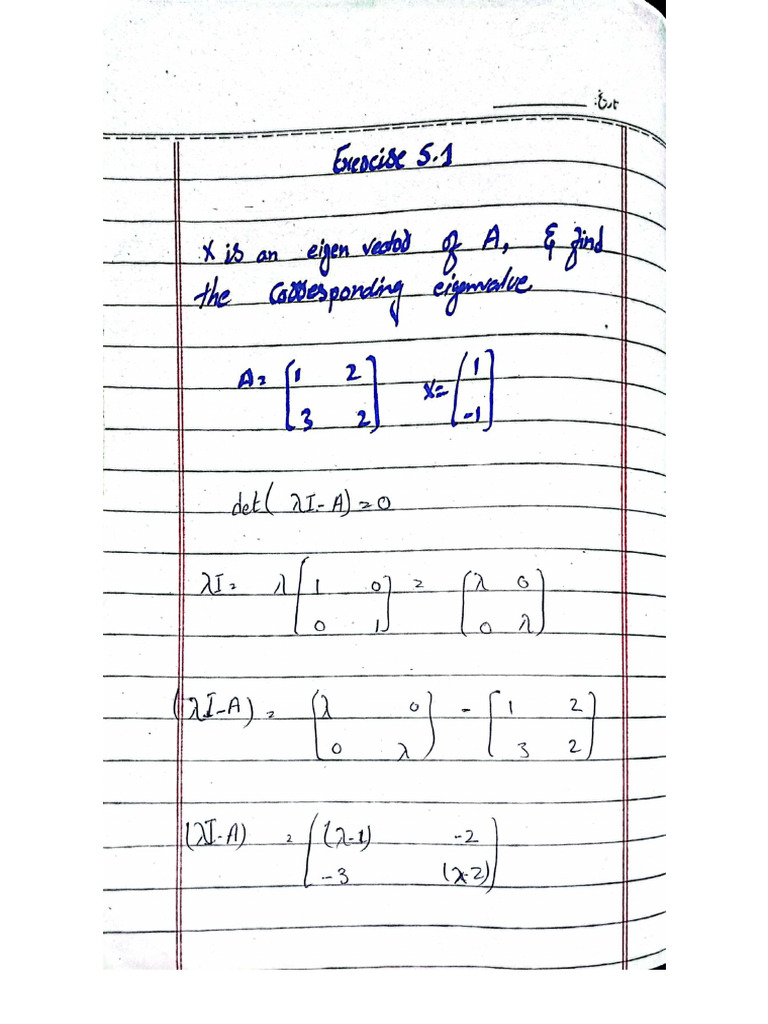 Exercise 5.1
X is an eigen vector of A, & find
the corresponding eigenvalue
A = [1 2
3 2] X = [1
-1]
det(λI-A)=0
λI = λ[1 0
0 1] = [λ 0
0 λ]
(λI-A) = [λ 0
0 λ] - [1 2
3 2]
(λI-A) = [(λ-1) -2
-3 (λ-2)]